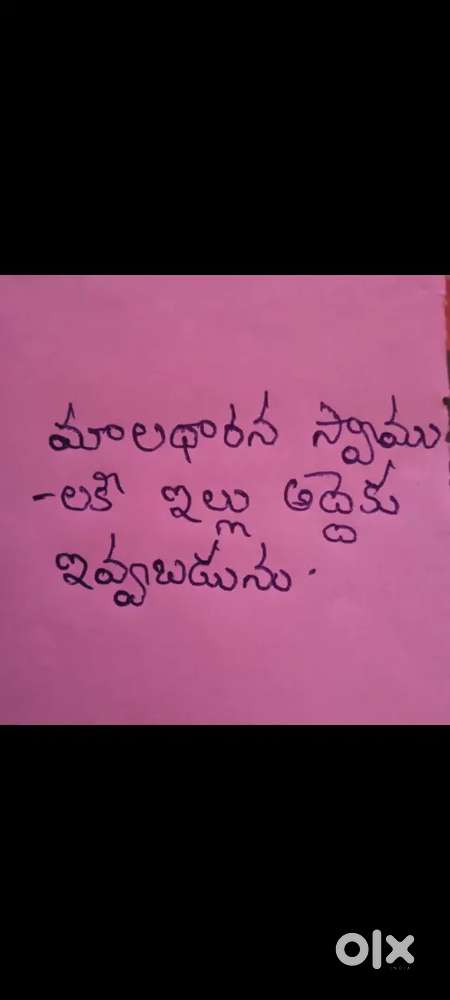 మాలధారన స్వాము
-లకి ఇల్లు అద్దెకు
ఇవ్వబడును.
olx
INDIA